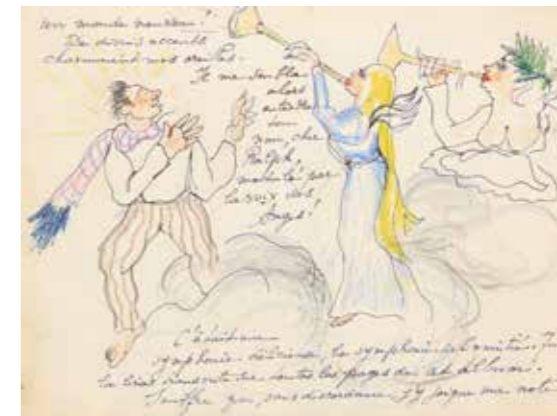 un monde nouveau!
De divins accents
charmaient nos oreilles.
Il me sembla
alors
entendre
ton
nom, cher
Ralph,
modulé par
la voix des
Anges!
C'était une
symphonie délicieuse, la symphonie de l'amitié. Je
la lirai dans toutes les pages de cet album.
Souffre que, sans discordance, j'y joigne ma note